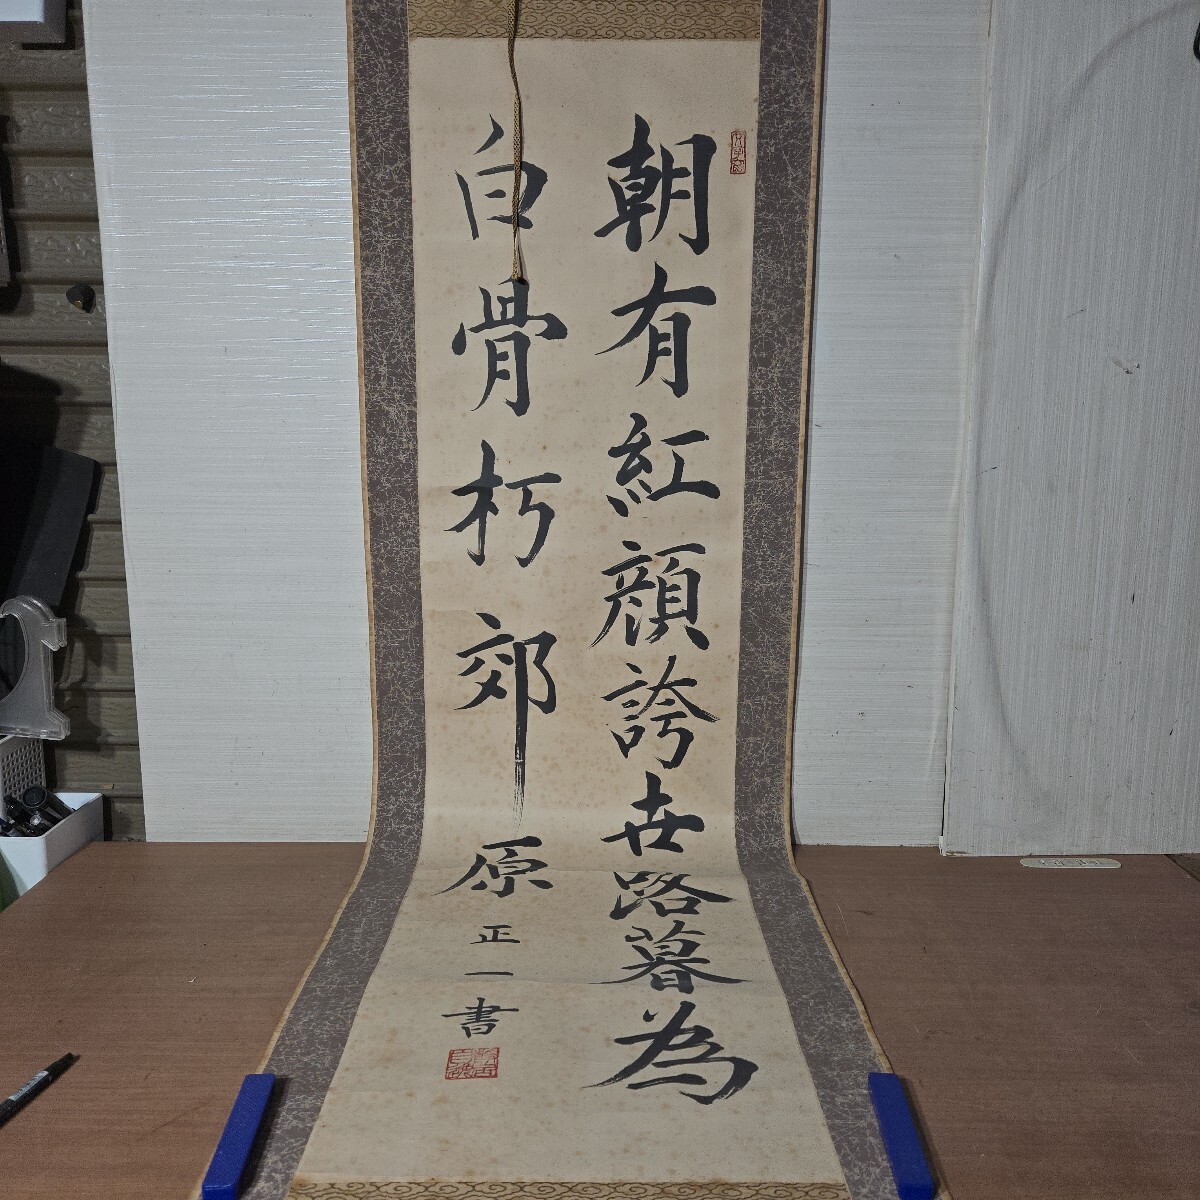 朝有紅顔誇世路暮為
白骨朽郊原
正一書